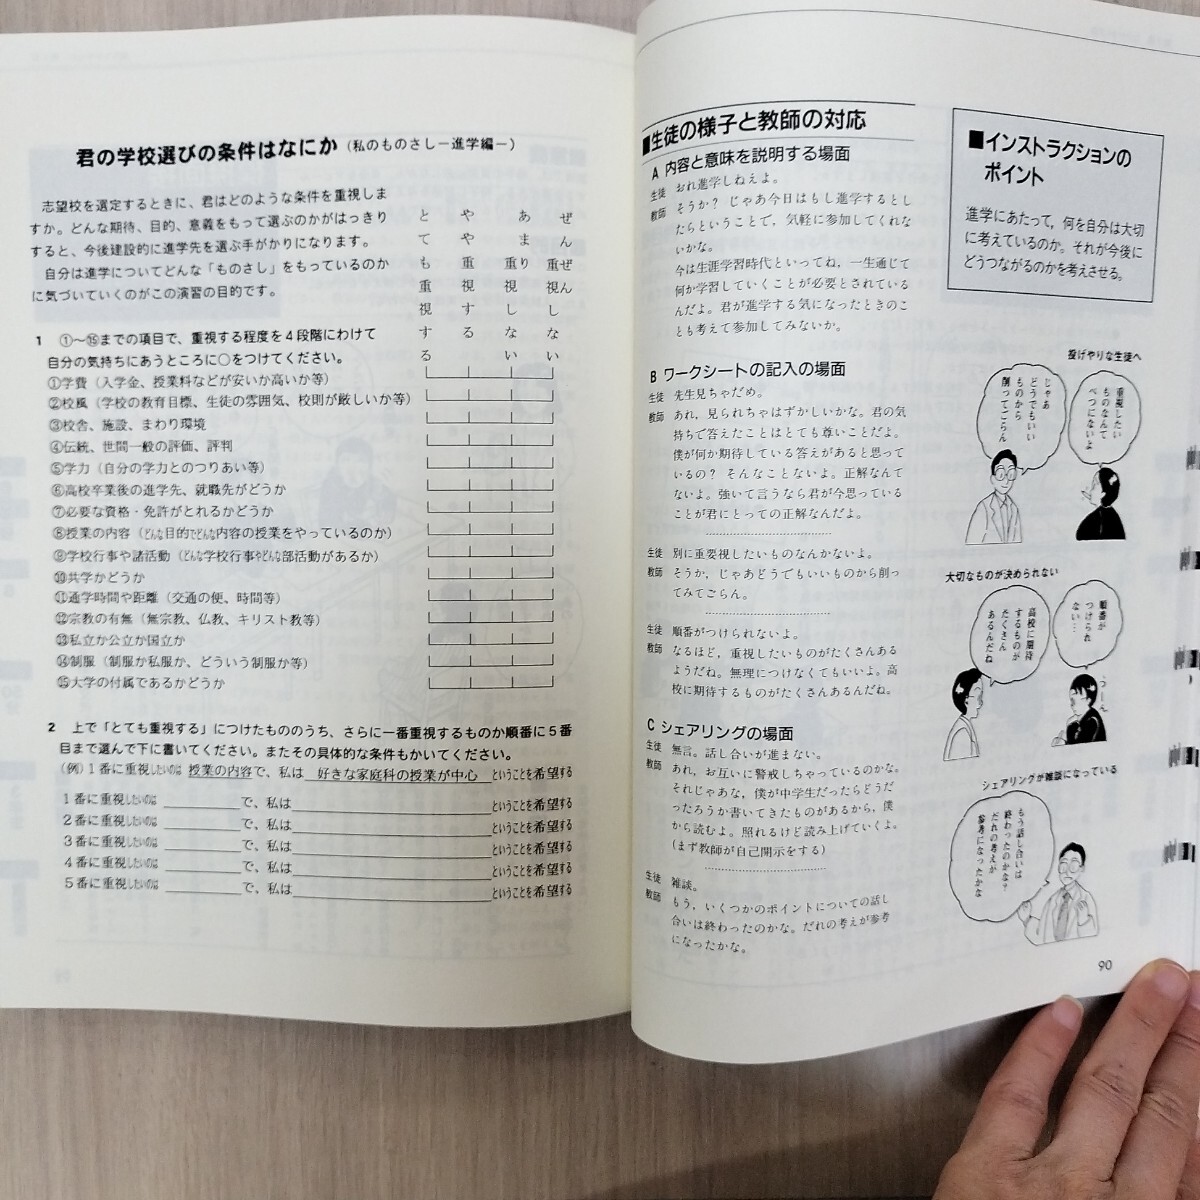 君の学校選びの条件はなにか（私のものさし－進学編－）
志望校を選定するときに、君はどのような条件を重視しま
すか。どんな期待、目的、意義をもって選ぶのかがはっきり
すると、今後建設的に進学先を選ぶ手がかりになります。
自分は進学についてどんな「ものさし」をもっているのか
に気づいていくのがこの演習の目的です。
とても重視する
やや重視する
あまり重視しない
ぜんぜん重視しない
1 ①〜⑮までの項目で、重視する程度を４段階にわけて
自分の気持ちにあうところに○をつけてください。
①学費（入学金、授業料などが安いか高いか等）
②校風（学校の教育目標、生徒の雰囲気、校則が厳しいか等）
③校舎、施設、まわり環境
④伝統、世間一般の評価、評判
⑤学力（自分の学力とのつりあい等）
⑥高校卒業後の進学先、就職先がどうか
⑦必要な資格・免許がとれるかどうか
⑧授業の内容（どんな目的でどんな内容の授業をやっているのか）
⑨学校行事や諸活動（どんな学校行事やどんな部活動があるか）
⑩共学かどうか
⑪通学時間や距離（交通の便、時間等）
⑫宗教の有無（無宗教、仏教、キリスト教等）
⑬私立か公立か国立か
⑭制服（制服か私服か、どういう制服か等）
⑮大学の付属であるかどうか
2 上で「とても重視する」につけたもののうち、さらに一番重視するものか順番に５番
目まで選んで下に書いてください。またその具体的な条件もかいてください。
（例）１番に重視したいのは 授業の内容で、私は 好きな家庭科の授業が中心 ということを希望する
１番に重視したいのは で、私は ということを希望する
２番に重視したいのは で、私は ということを希望する
３番に重視したいのは で、私は ということを希望する
４番に重視したいのは で、私は ということを希望する
５番に重視したいのは で、私は ということを希望する
■生徒の様子と教師の対応
A 内容と意味を説明する場面
生徒 おれ進学しねえよ。
教師 そうか？ じゃあ今日はもし進学するとし
たらということで，気軽に参加してくれな
いかな。
今は生涯学習時代といってね，一生通じて
何か学習していくことが必要とされている
んだよ。君が進学する気になったときのこ
とも考えて参加してみないか。
B ワークシートの記入の場面
生徒 先生見ちゃだめ。
教師 あれ，見られちゃはずかしいかな。君の気
持ちで答えたことはとても尊いことだよ。
僕が何か期待している答えがあると思って
いるの？ そんなことないよ。正解なんて
ないよ。強いて言うなら君が今思っている
ことが君にとっての正解なんだよ。
…………………………………
生徒 別に重要視したいものなんかないよ。
教師 そうか，じゃあどうでもいいものから削っ
てみてごらん。
…………………………………
生徒 順番がつけられないよ。
教師 なるほど，重視したいものがたくさんある
ようだね。無理につけなくてもいいよ。高
校に期待するものがたくさんあるんだね。
C シェアリングの場面
生徒 無言。話し合いが進まない。
教師 あれ，お互いに警戒しちゃっているのかな。
それじゃあ，僕が中学生だったらどうだ
ったろうか書いてきたものがあるから，僕
から読むよ。照れるけど読み上げていくよ。
（まず教師が自己開示をする）
…………………………………
生徒 雑談。
教師 もう，いくつかのポイントについての話し
合いは終わったのかな。だれの考えが参考
になったかな。
■インストラクションの
ポイント
進学にあたって，何を自分は大切
に考えているのか。それが今後に
どうつながるのかを考えさせる。
投げやりな生徒へ
重視したい
ものなんて
べつにないよ
じゃあ
どうでもいい
ものから
削ってごらん
大切なものが決められない
順番が
つけられ
ない…
うーん
高校に期待
するものが
たくさん
あるんだね
シェアリングが雑談になっている
もう話し合いは
終わったのかな？
だれの考えが
参考になったかな
90